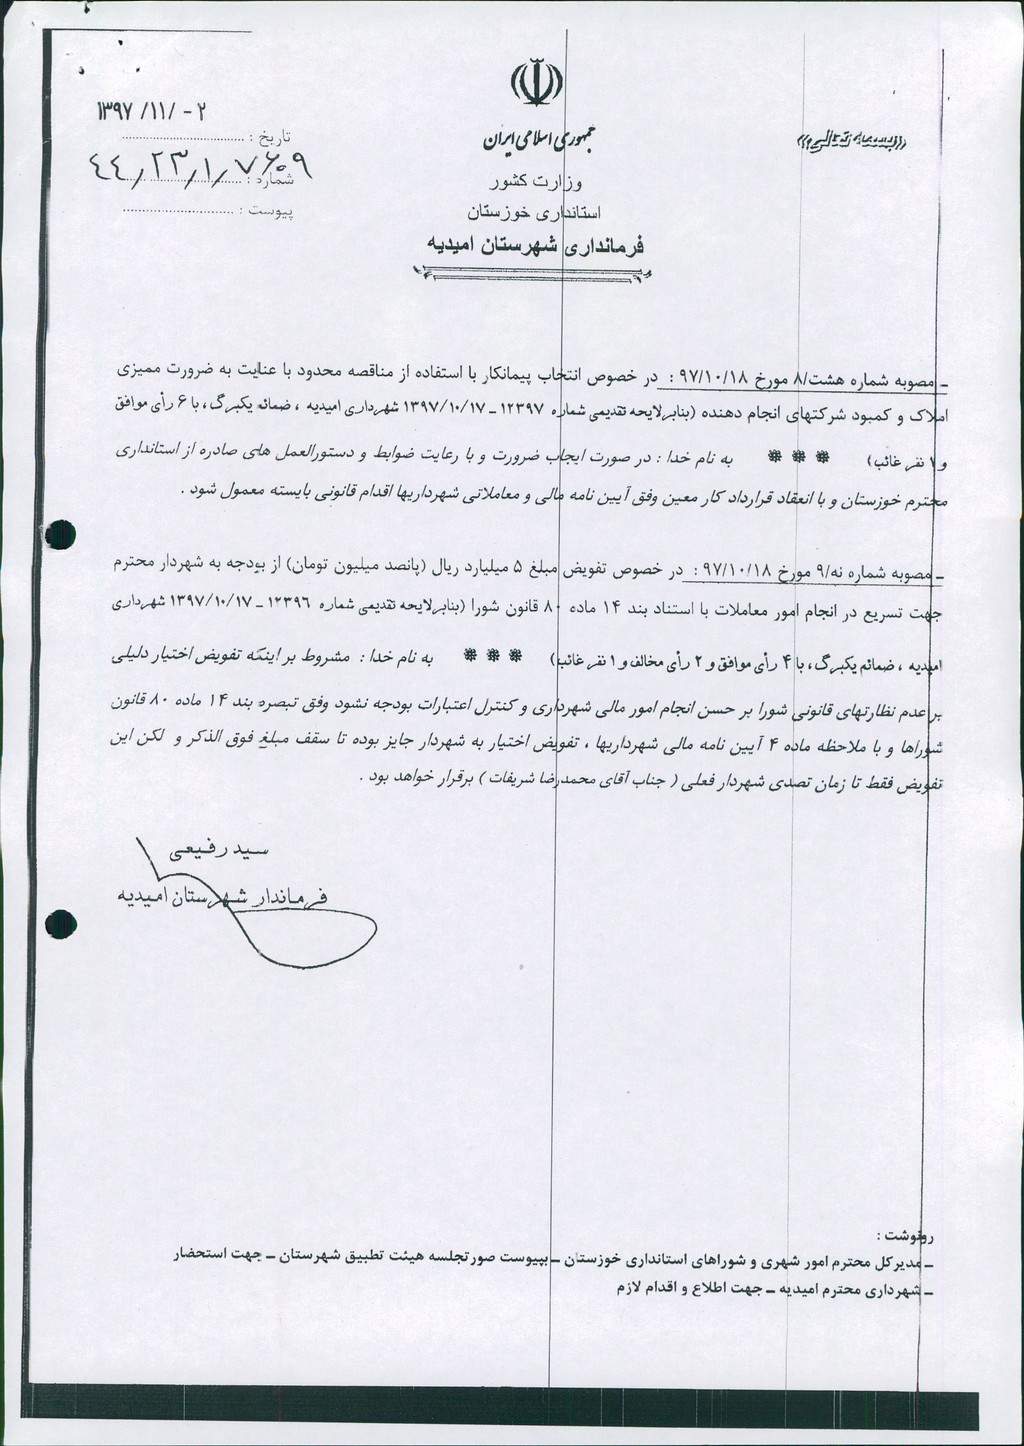 «بسمه تعالی»
جمهوری اسلامی ایران
وزارت کشور
استانداری خوزستان
فرمانداری شهرستان امیدیه
۱۳۹۷/۱۱/-۲
تاریخ : ........................
شماره : ۴۴/۲۳/۱/۷۶۰۹
پیوست : ........................
ـ مصوبه شماره هشت/۸ مورخ ۹۷/۱۰/۱۸ : در خصوص انتخاب پیمانکار با استفاده از مناقصه محدود با عنایت به ضرورت ممیزی
املاک و کمبود شرکتهای انجام دهنده (بنابرلایحه تقدیمی شماره ۱۲۳۹۷ – ۱۳۹۷/۱۰/۱۷ شهرداری امیدیه ، ضمائم یکبرگ، با ۶ رأی موافق
و ۱ نفر غائب) ❋ ❋ ❋ به نام خدا : در صورت ایجاب ضرورت و با رعایت ضوابط و دستورالعمل های صادره از استانداری
محترم خوزستان و با انعقاد قرارداد کار معین وفق آیین نامه مالی و معاملاتی شهرداریها اقدام قانونی بایسته معمول شود .
ـ مصوبه شماره نه/۹ مورخ ۹۷/۱۰/۱۸ : در خصوص تفویض مبلغ ۵ میلیارد ریال (پانصد میلیون تومان) از بودجه به شهردار محترم
جهت تسریع در انجام امور معاملات با استناد بند ۱۴ ماده ۸۰ قانون شورا (بنابرلایحه تقدیمی شماره ۱۲۳۹۶ – ۱۳۹۷/۱۰/۱۷ شهرداری
امیدیه ، ضمائم یکبرگ، با ۴ رأی موافق و ۲ رأی مخالف و ۱ نفر غائب) ❋ ❋ ❋ به نام خدا : مشروط بر اینکه تفویض اختیار دلیلی
بر عدم نظارتهای قانونی شورا بر حسن انجام امور مالی شهرداری و کنترل اعتبارات بودجه نشود وفق تبصره بند ۱۴ ماده ۸۰ قانون
شوراها و با ملاحظه ماده ۴ آیین نامه مالی شهرداریها ، تفویض اختیار به شهردار جایز بوده تا سقف مبلغ فوق الذکر و لکن این
تفویض فقط تا زمان تصدی شهردار فعلی ( جناب آقای محمدرضا شریفات ) برقرار خواهد بود .
سید رفیعی
فرماندار شهرستان امیدیه
رونوشت :
ـ مدیرکل محترم امور شهری و شوراهای استانداری خوزستان ـ بپیوست صورتجلسه هیئت تطبیق شهرستان ـ جهت استحضار
ـ شهرداری محترم امیدیه ـ جهت اطلاع و اقدام لازم